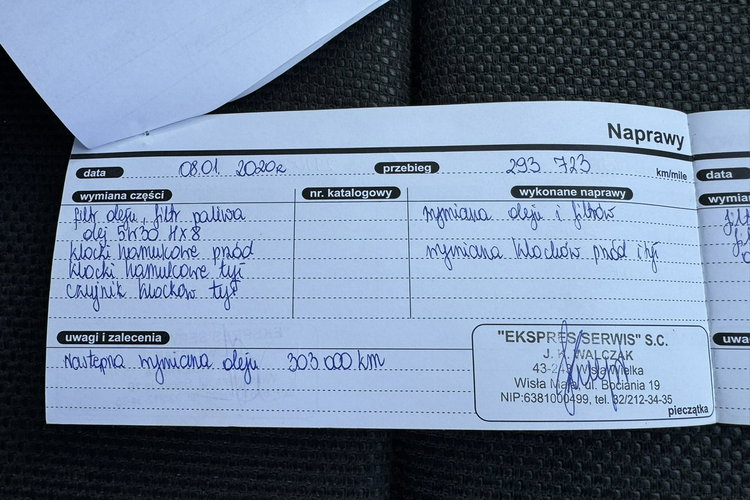 Naprawy
data 08.01 2020r przebieg 293 723 km/mile
wymiana części nr. katalogowy wykonane naprawy
filtr oleju, filtr paliwa
olej 5W30 HX8
klocki hamulcowe przód
klocki hamulcowe tył
czujnik klocków tył
wymiana oleju i filtrów
wymiana klocków przód i tył
uwagi i zalecenia
Następna wymiana oleju 303 000 km
"EKSPRES SERWIS" S.C.
J. K. WALCZAK
43-243 Wisła Wielka
Wisła Mała, ul. Bociania 19
NIP:6381000499, tel. 32/212-34-35
pieczątka
data